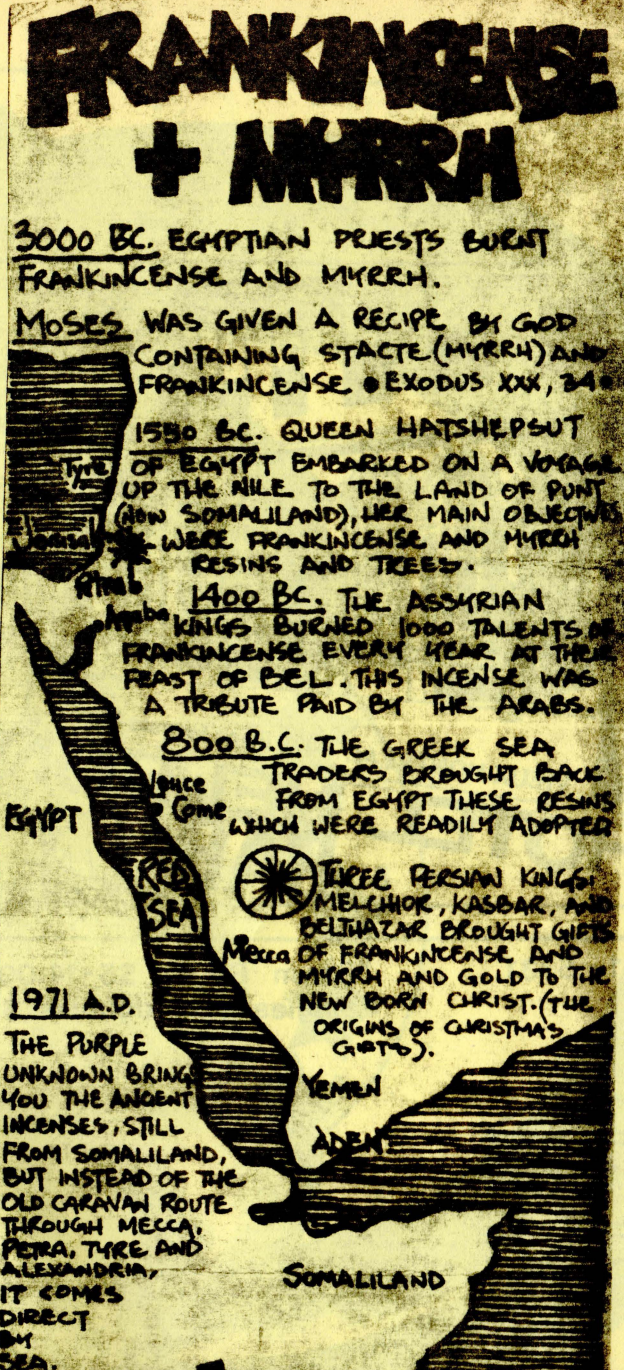 FRANKINCENSE
+ MYRRH
3000 BC. EGYPTIAN PRIESTS BURNT
FRANKINCENSE AND MYRRH.
MOSES WAS GIVEN A RECIPE BY GOD
CONTAINING STACTE (MYRRH) AND
FRANKINCENSE • EXODUS XXX, 34 •
1550 BC. QUEEN HATSHEPSUT
OF EGYPT EMBARKED ON A VOYAGE
UP THE NILE TO THE LAND OF PUNT
(NOW SOMALILAND), HER MAIN OBJECTIVES
WERE FRANKINCENSE AND MYRRH
RESINS AND TREES.
1400 BC. THE ASSYRIAN
KINGS BURNED 1000 TALENTS OF
FRANKINCENSE EVERY YEAR AT THEIR
FEAST OF BEL. THIS INCENSE WAS
A TRIBUTE PAID BY THE ARABS.
800 B.C. THE GREEK SEA
TRADERS BROUGHT BACK
FROM EGYPT THESE RESINS
WHICH WERE READILY ADOPTED
THREE PERSIAN KINGS,
MELCHIOR, KASBAR, AND
BELTHAZAR BROUGHT GIFTS
OF FRANKINCENSE AND
MYRRH AND GOLD TO THE
NEW BORN CHRIST. (THE
ORIGINS OF CHRISTMAS
GIFTS).
1971 A.D.
THE PURPLE
UNKNOWN BRINGS
YOU THE ANCIENT
INCENSES, STILL
FROM SOMALILAND,
BUT INSTEAD OF THE
OLD CARAVAN ROUTE
THROUGH MECCA,
PETRA, TYRE AND
ALEXANDRIA,
IT COMES
DIRECT
BY
SEA.
Tyre
Aqaba
Leuce
Come
EGYPT
RED
SEA
Mecca
YEMEN
ADEN
SOMALILAND